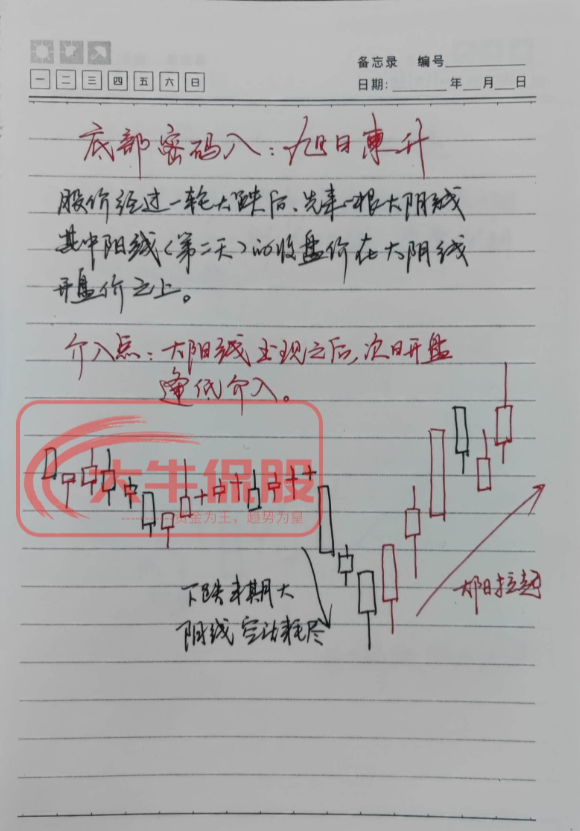 备忘录 编号
一 二 三 四 五 六 日
日期: 年 月 日
底部密码八：旭日東升
股价经过一轮大跌后、先来一根大阴线
其中阳线(第二天)的收盘价在大阴线
开盘价之上。
介入点：大阳线出现之后,次日开盘
逢低介入。
大牛保股
资金为王，趋势为皇
下跌末期大
阴线 空动耗尽
拉起